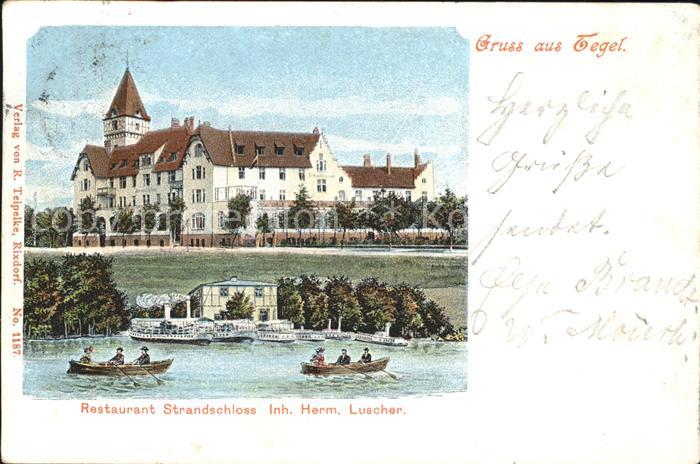 Gruss aus Tegel.
Herzliche
Grüße
sendet.
Olga Brand
W.
Verlag von R. Teipelke, Rixdorf. No. 1187.
Restaurant Strandschloss Inh. Herm. Luscher.